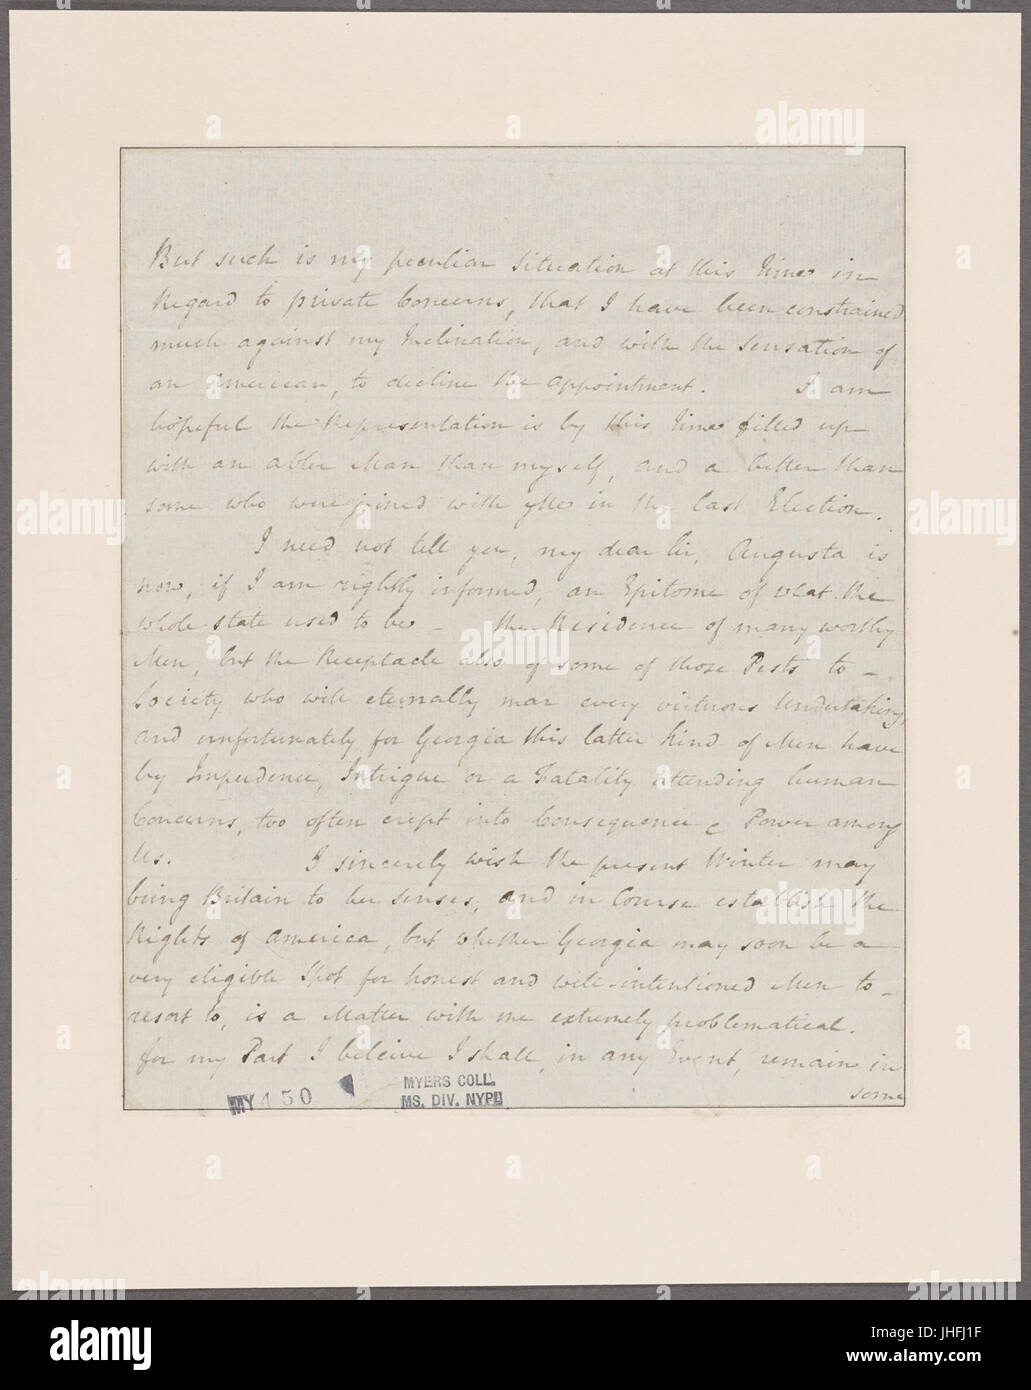 But such is my peculiar Situation at this Time in
Regard to private Concerns, that I have been constrained
much against my Inclination, and with the Sensation of
an American, to decline the appointment. I am
hopeful the Representation is by this Time filled up
with an abler Man than myself, and a better than
some who were joined with in the last Election.
I need not tell you, my dear Sir, Augusta is
now, if I am rightly informed, an Epitome of what the
whole State used to be - the Residence of many worthy
Men, but the Receptacle also of some of those Pests to -
Society who will eternally mar every virtuous Undertaking,
and unfortunately for Georgia this latter Kind of Men have
by Impudence, Intrigue or a Fatality attending human
Concerns, too often crept into Consequence & Power among
Us. I sincerely wish the present Winter may
bring Britain to her Senses, and in Course establish the
Rights of America, but whether Georgia may soon be a
very eligible Spot for honest and well-intentioned Men to -
resort to, is a Matter with me extremely problematical.
For my Part I beleive I shall, in any Event, remain in
some
MY 450
MYERS COLL.
MS. DIV. NYPL
alamy
Image ID: JHFJ1F
www.alamy.com